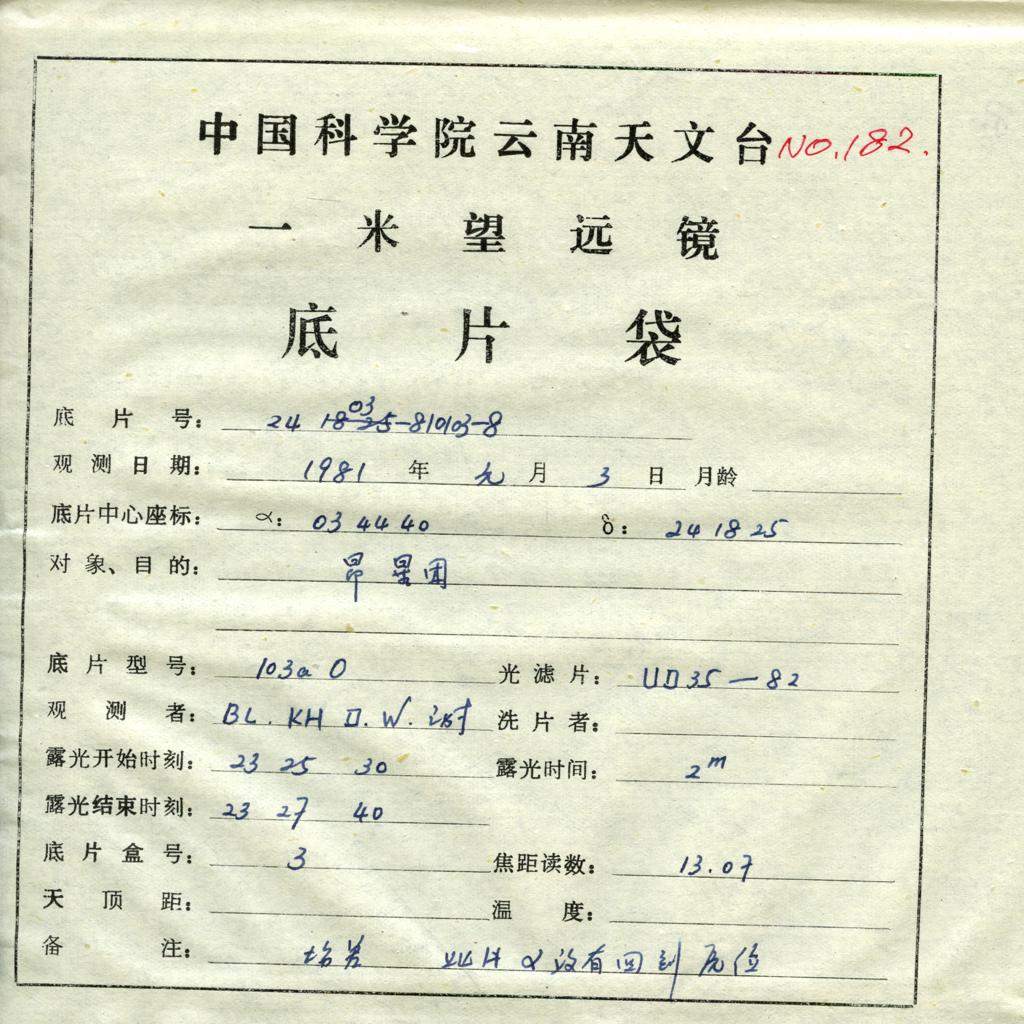 中国科学院云南天文台 NO.182.
一米望远镜
底片袋
底片号: 24 18 25-810103-8
03
观测日期: 1981 年 元 月 3 日 月龄
底片中心座标: α: 03 44 40 δ: 24 18 25
对象、目的: 昴星团
底片型号: 103a O 光滤片: UD35—82
观测者: BL. KH 洗片者:
露光开始时刻: 23 25 30 露光时间: 2m
露光结束时刻: 23 27 40
底片盒号: 3 焦距读数: 13.07
天顶距: 温度:
备注: 此片α没有回到